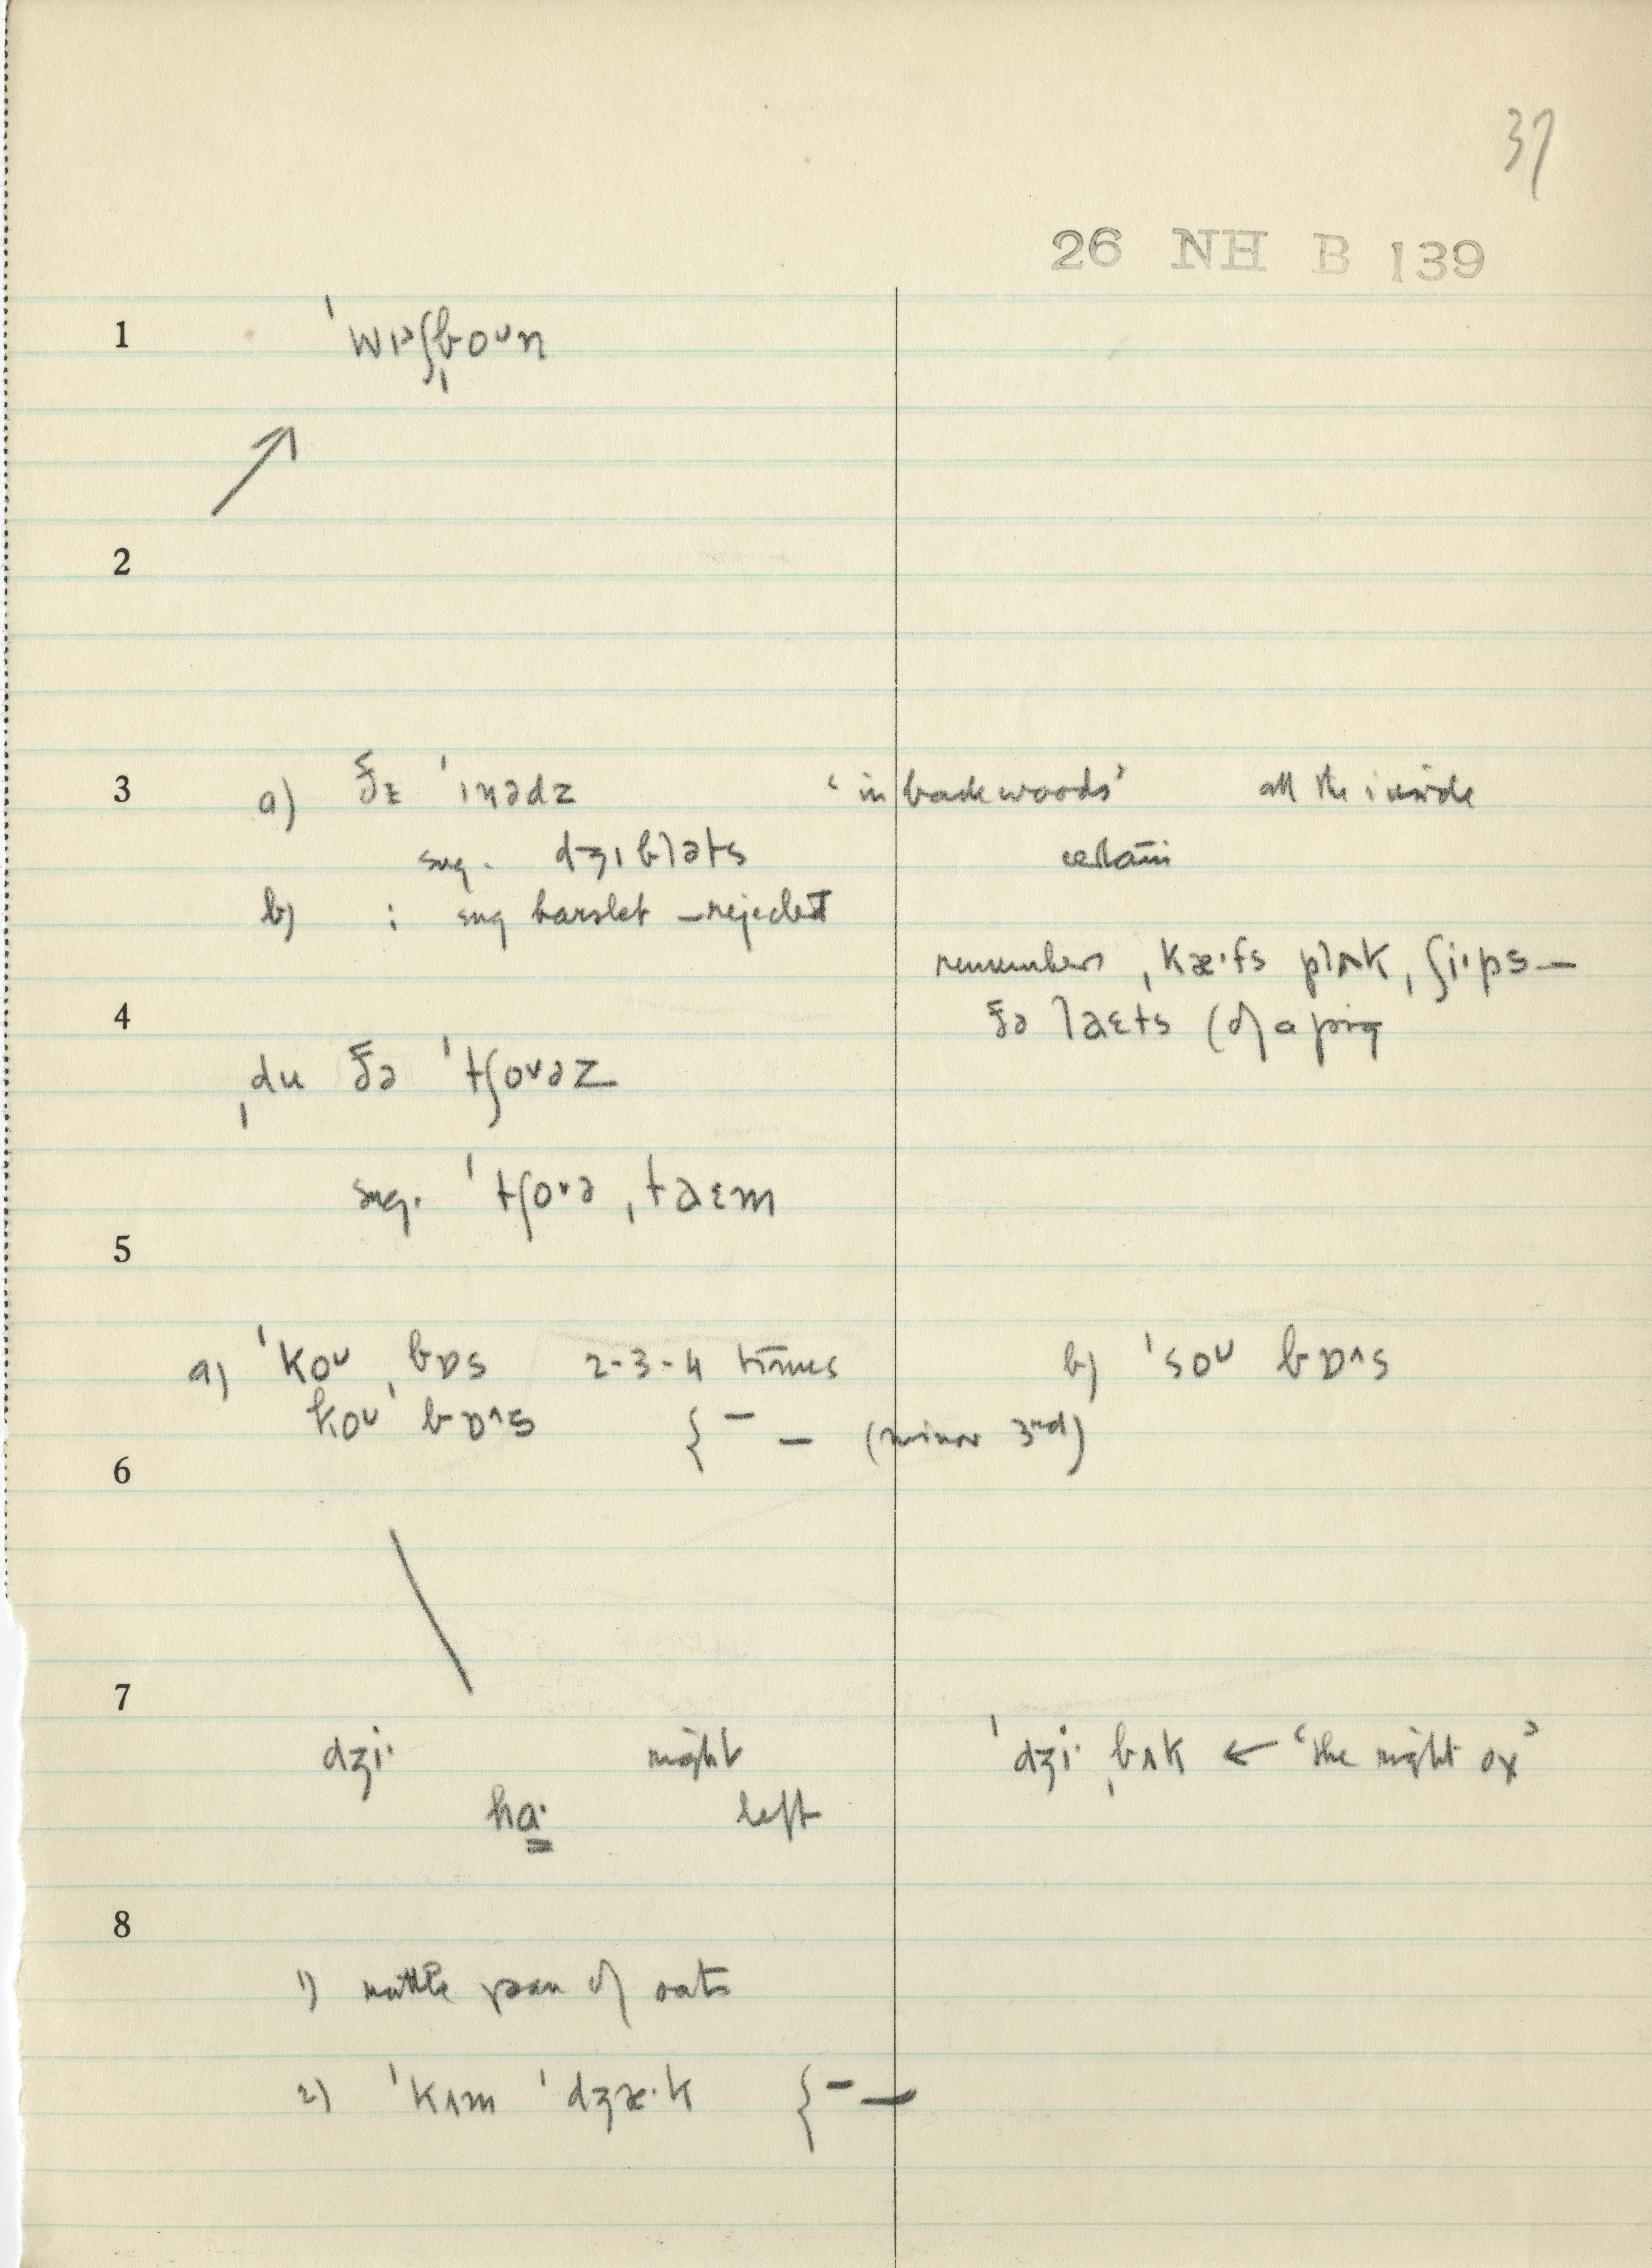 37
26 NH B 139
1 ˈwɪᵊʃˌboᵘn
2
3 a) ðɪ ˈɪnədz ‘in backwoods’ all the inside
sug. dʒɪbləts certain
b) : sug harslet – rejected
remembers ˌkæ·fs plʌk, ˌʃi·ps —
4 ðə laɛts (of a pig
ˌdu ðə ˈtʃoᵛəz
sug. ˈtʃoᵛə ˌtaɛm
5
a) ˈkoᵘ ˌbɒs 2-3-4 times b) ˈsoᵘ bɒ^s
koᵘ ˈbɒ^s { – – (minor 3rd)
6
7
dʒi· right ˈdʒi· ˌbʌk ← ‘the right ox’
ha· left
8
1) rattle pan of oats
2) ˈkʌm ˈdʒæ·k { – –